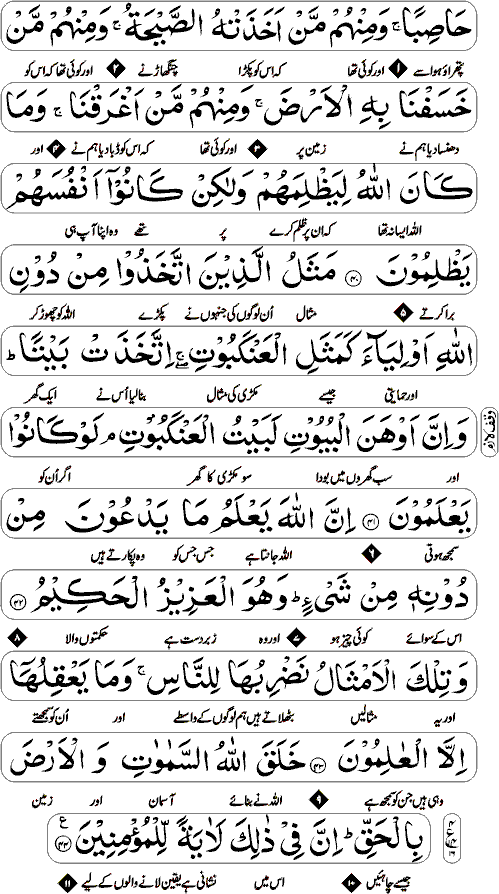 حَاصِبًا ۚ وَمِنْهُمْ مَّنْ اَخَذَتْهُ الصَّيْحَةُ ۚ وَمِنْهُمْ مَّنْ
پتھراؤ ہوا سے ۱ اور کوئی تھا کہ اس کو پکڑا چنگھاڑ نے ۲ اور کوئی تھا کہ اس کو
خَسَفْنَا بِهِ الْاَرْضَ ۚ وَمِنْهُمْ مَّنْ اَغْرَقْنَا ۚ وَمَا
دھنسا دیا ہم نے زمین پر ۳ اور کوئی تھا کہ اس کو ڈبا دیا ہم نے ۴ اور
كَانَ اللّٰهُ لِيَظْلِمَهُمْ وَلٰكِنْ كَانُوْٓا اَنْفُسَهُمْ
اللہ ایسا نہ تھا کہ ان پر ظلم کرے پر تھے وہ اپنا آپ ہی
يَظْلِمُوْنَ ۴۰ مَثَلُ الَّذِيْنَ اتَّخَذُوْا مِنْ دُوْنِ
برا کرتے ۵ مثال اُن لوگوں کی جنہوں نے پکڑے اللہ کو چھوڑ کر
اللّٰهِ اَوْلِيَآءَ كَمَثَلِ الْعَنْكَبُوْتِ ۚ اِتَّخَذَتْ بَيْتًا ؕ
اور حمایتی جیسے مکڑی کی مثال بنا لیا اُس نے ایک گھر
وَاِنَّ اَوْهَنَ الْبُيُوْتِ لَبَيْتُ الْعَنْكَبُوْتِ ۘ لَوْ كَانُوْا
وقف لازم
اور سب گھروں میں بودا سو مکڑی کا گھر اگر اُن کو
يَعْلَمُوْنَ ۴۱ اِنَّ اللّٰهَ يَعْلَمُ مَا يَدْعُوْنَ مِنْ
سمجھ ہوتی ۶ اللہ جانتا ہے جس جس کو وہ پکارتے ہیں
دُوْنِهٖ مِنْ شَيْءٍ ؕ وَهُوَ الْعَزِيْزُ الْحَكِيْمُ ۴۲
اس کے سوائے کوئی چیز ہو ۷ اور وہ زبردست ہے حکمتوں والا ۸
وَتِلْكَ الْاَمْثَالُ نَضْرِبُهَا لِلنَّاسِ ۚ وَمَا يَعْقِلُهَآ
اور یہ مثالیں بٹھلاتے ہیں ہم لوگوں کے واسطے اور اُن کو سمجھتے
اِلَّا الْعٰلِمُوْنَ ۴۳ خَلَقَ اللّٰهُ السَّمٰوٰتِ وَ الْاَرْضَ
وہی ہیں جن کو سمجھ ہے ۹ اللہ نے بنائے آسمان اور زمین
بِالْحَقِّ ؕ اِنَّ فِيْ ذٰلِكَ لَاٰيَةً لِّلْمُؤْمِنِيْنَ ۴۴
جیسے چاہئیں ۱۰ اس میں نشانی ہے یقین لانے والوں کے لیے ۱۱